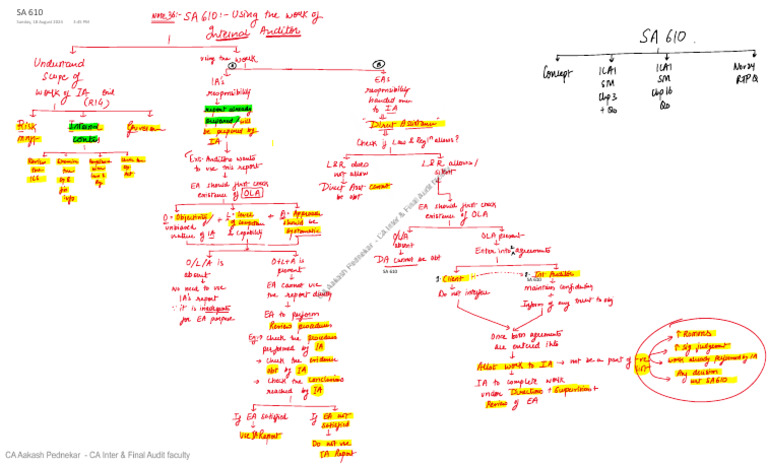 SA 610
Sunday, 18 August 2024
Note 36:- SA 610:- Using the work of
Internal Auditor
SA 610.
Concept
ICAI
SM
Chp 3
+ Qs
ICAI
SM
Chp 16
Qs
Nov 24
RTP Q
Understand
scope of
work of IA
(RIG)
Risk
mgt.
Internal
control
Governance
Using the work
A
IA's
responsibility
report already
prepared / will
be prepared by
IA
Ext. Auditor wants
to use this report
EA should just check
existence of OLA
O = Objectivity /
unbiased
nature of IA
+ L = Level
of competence
& capability
+ A = Approach
should be
systematic
O/L/A is
absent
No need to use
IA's report
∵ it is inadequate
for EA purpose
O+L+A is
present
EA cannot use
the report directly
EA to perform
Review procedures
Eg:→ check the procedure
performed by IA
→ check the evidence
obt by IA
→ check the conclusions
reached by IA
If EA satisfied
Use IA Report
If EA not
satisfied
Do not use
IA Report
B
EA's
responsibility
handed over
to IA
"Direct Assistance"
Check if Law & Regn allows?
L&R does
not allow
Direct Asst cannot
be obt
L&R allows /
silent
EA should just check
existence of OLA
OLA
absent
DA cannot be obt
SA 610
OLA present
Enter into 2 agreements
1. Client
Do not interfere
2. Int Auditor
SA 610
maintain confidentiality
+
Inform of any threat to obj
Once both agreements
are entered into
Allot work to IA → not be a part of
IA to complete work
under Direction + Supervision +
Review of EA
↑ Romms
↑ Sig. judgement
work already performed by IA
Any decision
urt SA 610
CA Aakash Pednekar - CA Inter & Final Audit Faculty
CA Aakash Pednekar - CA Inter & Final Audit faculty